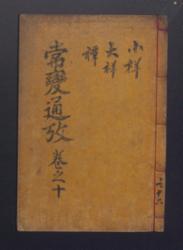 小祥
大祥
禫
常變通攷 卷之十